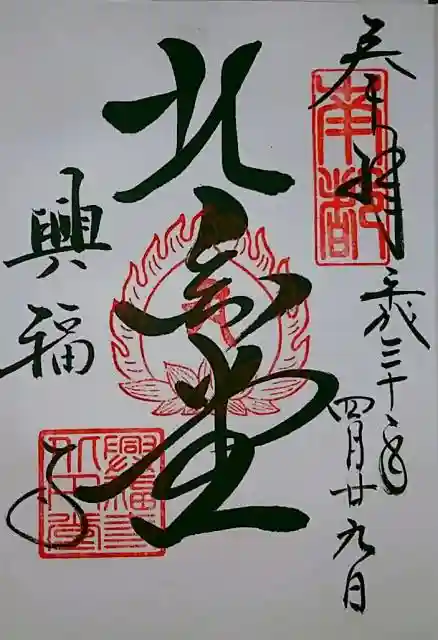 奉拝
南都
平成三十年
四月廿九日
北円堂
興福寺